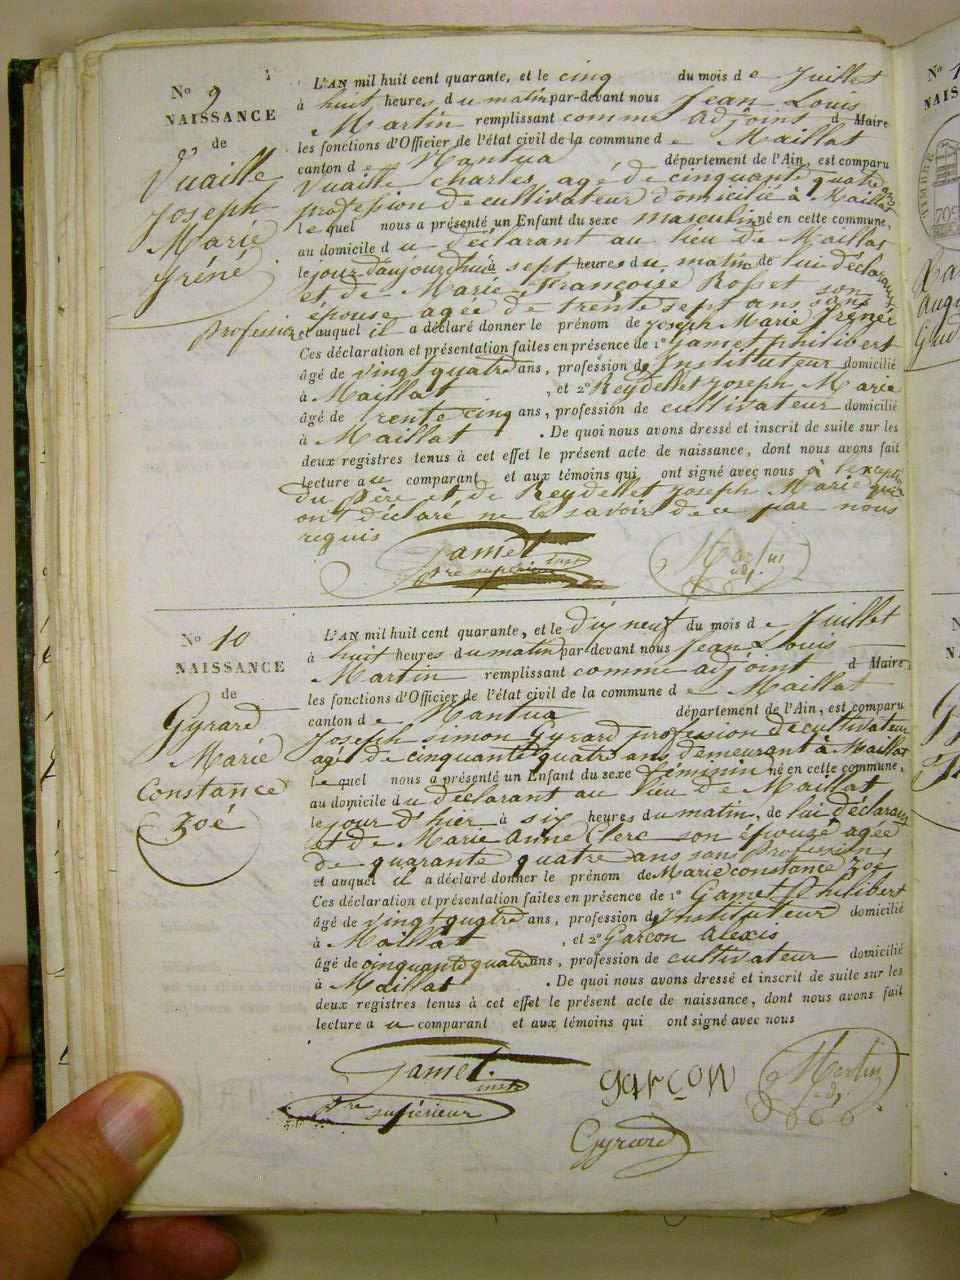 No 9
NAISSANCE
de
Vuaille
Joseph
Marie
Iréné
L'AN mil huit cent quarante, et le cinq du mois d e Juillet
à huit heures du matin par-devant nous Jean Louis
Martin remplissant comme adjoins d Maire
les fonctions d'Officier de l'état civil de la commune d e Maillat
canton d e Nantua département de l'Ain, est comparu
Vuaille Charles agé de cinquante quatre ans
profession de cultivateur domicilié à Maillat
lequel nous a présenté un Enfant du sexe masculin né en cette commune,
au domicile d u déclarant au lieu de Maillat
le jour d'aujourdhui à sept heures du matin de lui déclarant
et de Marie Françoise Rosset son
épouse agée de trente sept ans sans
profession et auquel il a déclaré donner le prénom de Joseph Marie Irénée
Ces déclaration et présentation faites en présence de 1o Gamet philibert
âgé de vingt quatre ans, profession de Instituteur domicilié
à Maillat , et 2o Reydellet Joseph Marie
âgé de trente cinq ans, profession de cultivateur domicilié
à Maillat . De quoi nous avons dressé et inscrit de suite sur les
deux registres tenus à cet effet le présent acte de naissance, dont nous avons fait
lecture au comparant et aux témoins qui ont signé avec nous à l'exception
du père et de Reydellet Joseph Marie qui
ont déclaré ne le savoir de ce par nous
requis
Gamet
inst
pre supérieur
Martin
adj
No 10
NAISSANCE
de
Gyrard
Marie
Constance
Zoé
L'AN mil huit cent quarante, et le dix neuf du mois d e Juillet
à huit heures du matin par-devant nous Jean Louis
Martin remplissant comme adjoint d Maire
les fonctions d'Officier de l'état civil de la commune d e Maillat
canton d e Nantua département de l'Ain, est comparu
Joseph simon Gyrard profession de cultivateur
agé de cinquante quatre ans demeurant à Maillat
lequel nous a présenté un Enfant du sexe féminin né en cette commune,
au domicile d u déclarant au lieu de Maillat
le jour d'hier à six heures du matin, de lui déclarant
et de Marie Anne Clerc son épouse agée
de quarante quatre ans sans profession
et auquel il a déclaré donner le prénom de Marie constance Zoé
Ces déclaration et présentation faites en présence de 1o Gamet Philibert
âgé de vingt quatre ans, profession d'Instituteur domicilié
à Maillat , et 2o Garcon Alexis
âgé de cinquante quatre ans, profession de cultivateur domicilié
à Maillat . De quoi nous avons dressé et inscrit de suite sur les
deux registres tenus à cet effet le présent acte de naissance, dont nous avons fait
lecture a u comparant et aux témoins qui ont signé avec nous
Gamet
inst
pre supérieur
garçon
Martin
adj
Gyrard